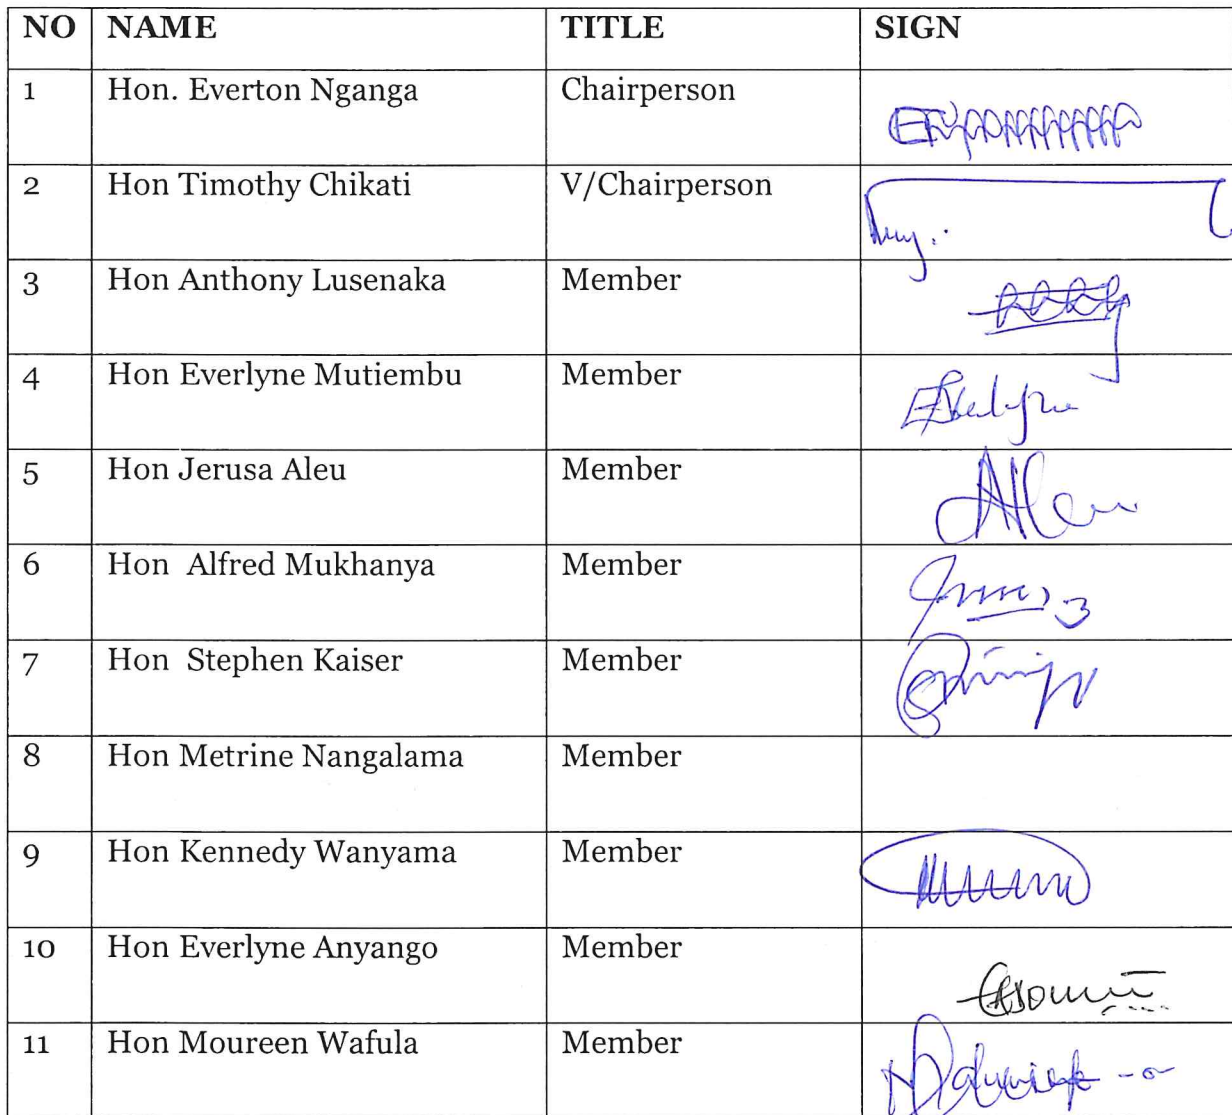 NO NAME TITLE SIGN
1 Hon. Everton Nganga Chairperson
2 Hon Timothy Chikati V/Chairperson
3 Hon Anthony Lusenaka Member
4 Hon Everlyne Mutiembu Member
5 Hon Jerusa Aleu Member
6 Hon Alfred Mukhanya Member
7 Hon Stephen Kaiser Member
8 Hon Metrine Nangalama Member
9 Hon Kennedy Wanyama Member
10 Hon Everlyne Anyango Member
11 Hon Moureen Wafula Member